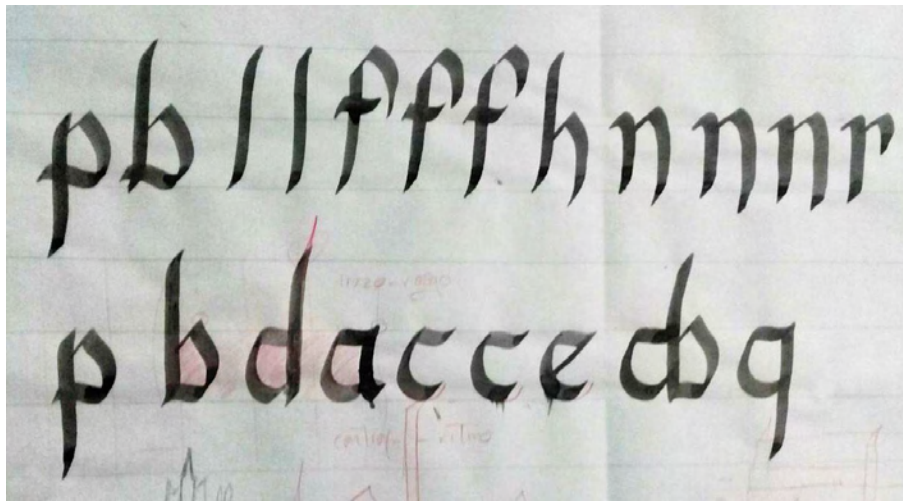 p b l l f f f h n n n r
p b d a c c e db q